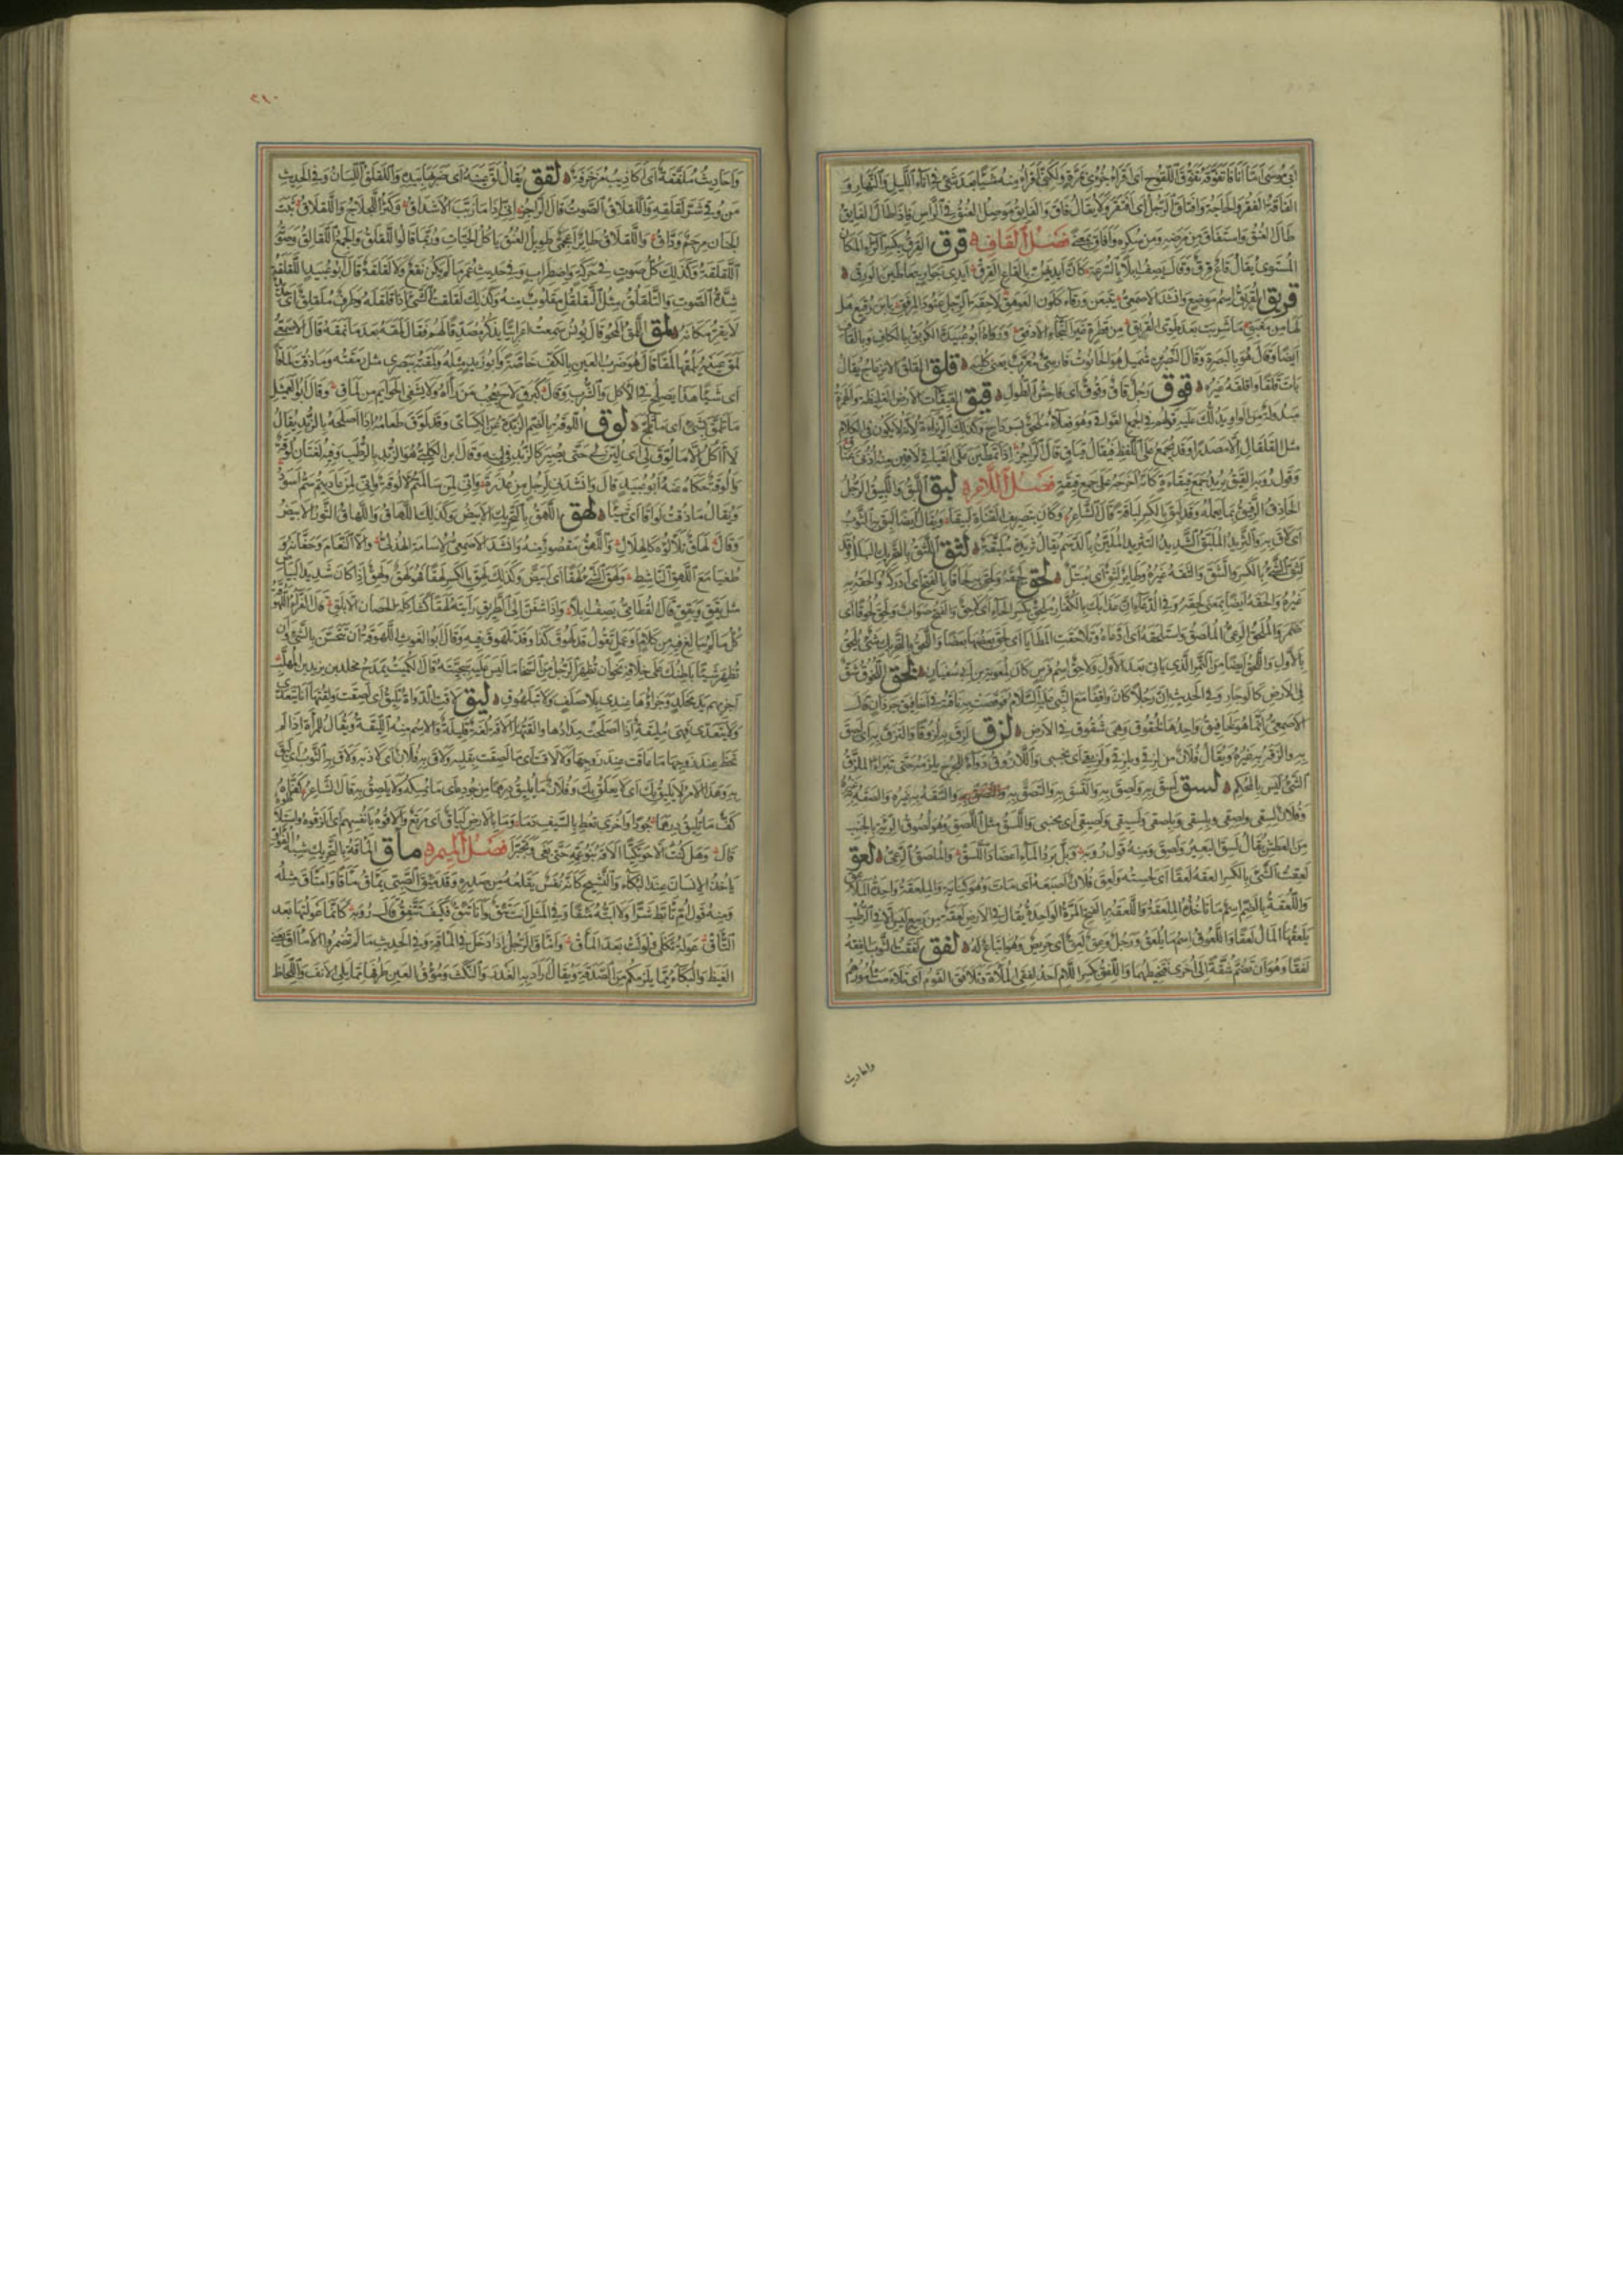 ابي موسى اما انا فاتفوقه تفوق اللقوح اى لا اقرأ جزوى بمرة ولكنى اقرأ منه شيئا بعد شئ في اناء الليل والنهار و
الفاقة الفقر والحاجة وافتاق الرجل اى افتقر ولا يقال فاق والفايق موصل العنق في الراس فاذا طال الفايق
طال العنق واستفاق من مرضه ومن سكره وافاق بمعنى فصل القاف قرق القرق بكسر الراء المكان
المستوى يقال قاع قرق وقال يصف ابلا بالسرعة كان ايديهن بالقاع القرق ايدى جوار يتعاطين الورق
قريق القريق اسم موضع وانشد الاصمعى
ايضا وقال هو بالبصرة وقال النضر بن شميل هو الحانوت فارسى معرب يعنى كلبه قلق القلق الانزعاج يقال
بات قلقا واقلقه غيره قوق رجل قاق وقوق اى فاحش الطول قيق القيقاءة الارض الغليظة والهمزة
مبدلة من الياء
مثل القلقال الا مصدرا وقد يجمع على اللفظ فيقال قياق قال الراجز اذا تمطين على القياقى لاقين منه اذنى عناق
وقول رؤبة القيق يريد جمع قيقاءة كانه اخرجه على جمع قيقة فصل اللام لبق اللبق واللبيق الرجل
الحاذق الرفيق بما يعمله وقد لبق بالكسر لباقة قال الشاعر وكان بتصريف القناة لبيقا ويقال ايضا لبق به الثوب
اى لاق به والثريد الملبق الشديد التثريد الملين بالدسم يقال ثريدة ملبقة لثق اللثق بالتحريك البلل وقد
لثق الشئ بالكسر والتثق والثقه غيره وطاير لثق اى مبتل لحق لحقه ولحق به لحاقا بالفتح اى ادركه والحقه به
غيره والحقه ايضا بمعنى لحقه وفي الدعاء ان عذابك بالكفار ملحق بكسر الحاء اى لاحق والفتح صواب ولحق لحوقا اى
ضمر والملحق الدعى الملصق واستلحقه اى ادعاه وتلاحقت المطايا اى لحق بعضها بعضا واللحق بالتحريك شئ يلحق
بالاول واللحق ايضا من الثمر الذى ياتى بعد الاول ولاحق اسم فرس كان لمعوية بن ابى سفيان لخق اللخقوق شق
في الارض كالوجار وفي الحديث ان رجلا كان واقفا مع النبى عليه السلام فوقصت به ناقته في اخاقيق جرذان قال
الاصمعى انما هو لخاقيق واحدها لخقوق وهى شقوق في الارض لزق لزق به لزوقا والتزق به اى لصق
به والزقه به غيره ويقال فلان لزقى وبلزقى ولزيقى اى بجنبى واللازوق دواء للجرح يلزمه حتى تبرأ والملزق
الشئ ليس بالمحكم لسق لسق به ولصق به والتسق به والتصق به والسقه به غيره والصقه به غيره
وفلان لسقى ولصقى وبلسقى وبلصقى ولسيقى ولصيقى اى بجنبى واللسق مثل اللصق وهو لصوق الرئة بالجنب
من العطش يقال لسق البعير ولصق ومنه قول رؤبة وبل برد الماء اعضاد اللسق والملصق الدعى لعق
لعقت الشئ بالكسر العقه لعقا اى لحسته ولعق فلان اصبعه اى مات وهو كناية والملعقة واحدة الملاعق
واللعقة بالضم اسم ما تاخذه الملعقة واللعقة بالفتح المرة الواحدة يقال في الارض لعقة من ربيع ليس الا في الرطب
يلعقها المال لعقا واللعوق اسم ما يلعق ورجل وعق لعق اى حريص وهو اتباع له لفق لفقت الثوب الفقه
لفقا وهو ان تضم شقة الى اخرى فتخيطهما واللفق بكسر اللام احد لفقى الملاءة وتلافق القوم اى تلاءمت امورهم
واحاديث
٣١٠
واحاديث ملفقة اى اكاذيب مزخرفة لقق يقال لق عينه اى ضربها بيده واللقلق اللسان وفي الحديث
من وقى شر لقلقه واللقلاق الصوت قال الراجز انى اذا ما زبب الاشداق وكثر اللجلاج واللقلاق ثبت
الجنان مرجم وداق واللقلاق طاير اعجمى طويل العنق ياكل الحيات وربما قالوا اللقلق والجمع اللقالق وصوته
اللقلقة وكذلك كل صوت في حركة واضطراب وفي حديث عمر ما لم يكن نقع ولا لقلقة قال ابو عبيد اللقلقة
شدة الصوت والتلقلق مثل التقلقل مقلوب منه وكذلك لقلقت الشئ اذا قلقلته وطرف ملقلق اى حديد
لا يقر مكانه لمق اللمق المحو قال يونس سمعت اعرابيا يذكر مصدقا لهم فقال لمقه بعد ما نمقه قال الاصمعى
لمق عينه يلمقها لمقا قال هو ضرب العين بالكف خاصة وابو زيد مثله ولمقته ببصرى مثل رمقته وما ذقت لماقا
اى شيئا هذا يصلح في الاكل والشرب وقال كبرق لاح يعجب من راه ولا يشفى الحوايم من لماق وقال ابو العميثل
ما تلمق بشئ اى ما تلمج لوق اللوقة بالضم الزبدة عن الكسائى وقد لوق طعامه اذا اصلحه بالزبد يقال
لا اكل الا ما لوق لى اى لين لى حتى يصير كالزبد في لينه وقال ابن الكلبى هو الزبد بالرطب وفيه لغتان لوقة
والوقة حكاه عنه ابو عبيد قال وانشد لرجل من عذرة وانى لمن سالمتم لالوقة وانى لمن عاديتم سم اسود
ويقال ما ذقت لواقا اى شيئا لهق اللهق بالتحريك الابيض وكذلك اللهاق واللهاق الثور الابيض
وقال لهاق تلألؤه كالهلال واللهق مقصور منه وانشد الاصمعى لاسامة الهذلى والا النعام وحفانه و
طغيا مع اللهق الناشط ولهق الشئ لهقا اى ابيض وكذلك لهق بالكسر لهقا فهو لهق ولهق اذا كان شديد البياض
مثل يقق ويقق قال القطامى يصف ابلا واذا شفن الى الطريق رأينه لهقا كشاكلة الحصان الابلق قال الفراء اللهوقة
كل ما لم يبالغ فيه من كلام او عمل تقول قد لهوق كذا وقد تلهوق فيه وقال ابو الغوث اللهوقة ان تتحسن بالشئ وان
تظهر شيئا باطنك على خلافه نحو ان تظهر الرجل من السخاء ما ليس عليه سجيته قال الكميت يمدح مخلد بن يزيد بن المهلب
اجزيهم يد مخلد وجزاؤها عندى بلا صلف ولا تلهوق ليق لاقت الدواة تليق اى لصقت ولقتها انا يتعدى
ولا يتعدى فهى مليقة اذا اصلحت مدادها والقتها الاقة لغة قليلة والاسم منه الليقة ويقال للمرأة اذا لم
تحظ عند زوجها ما عاقت عند زوجها ولا لاقت اى ما لصقت بقلبه ولاق به فلان اى لاذ به ولاق به الثوب اى لبق
به وهذا الامر لا يليق بك اى لا يعلق بك وفلان ما يليق درهما من جوده اى ما يمسكه ولا يلصق به قال الشاعر كفاه
كف ما تليق درهما جودا واخرى تعط بالسيف دما وما بالارض لياق اى مرتع
فصل الميم مأق المأقة بالتحريك شبه الفواق
ياخذ الانسان عند البكاء والنشيج كانه نفس يقلعه من صدره وقد مئق الصبى يمأق مأقا وامتأق مثله
ومنه قول ام تأبط شرا ولا ابته مئقا وفي المثل انت تئق وانا مئق فكيف نتفق قال رؤبة كانما عولتها بعد
التأق عولة ثكلى ولولت بعد المأق وامأق الرجل اذا دخل في المأقة وفي الحديث ما لم تضمروا الامآق يعنى
الغيظ والبكاء مما يلزمكم من الصدقة ويقال اراد به الغدر والنكث ومؤق العين طرفها مما يلى الانف واللحاظ